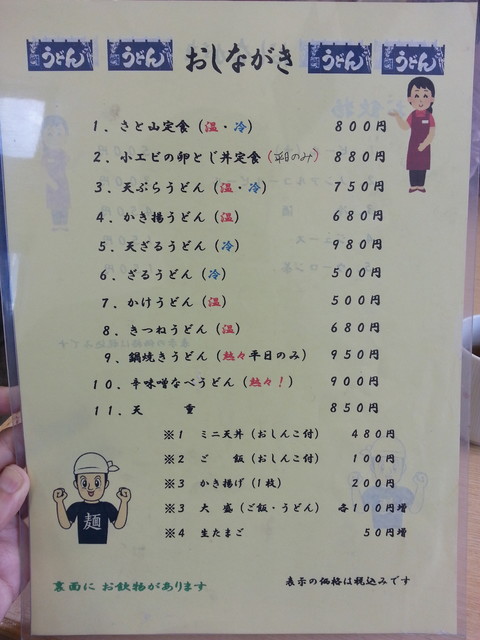 うどん うどん おしながき うどん うどん
1．さと山定食（温・冷） 800円
2．小エビの卵とじ丼定食（平日のみ） 880円
3．天ぷらうどん（温・冷） 750円
4．かき揚うどん（温） 680円
5．天ざるうどん（冷） 980円
6．ざるうどん（冷） 500円
7．かけうどん（温） 500円
8．きつねうどん（温） 680円
9．鍋焼きうどん（熱々平日のみ） 950円
10．辛味噌なべうどん（熱々！） 900円
11．天　重 850円
※1 ミニ天丼（おしんこ付） 480円
※2 ご　飯（おしんこ付） 100円
※3 かき揚げ（1枚） 200円
※3 大　盛（ご飯・うどん） 各100円増
※4 生たまご 50円増
麺
裏面に お飲物があります
表示の価格は税込みです